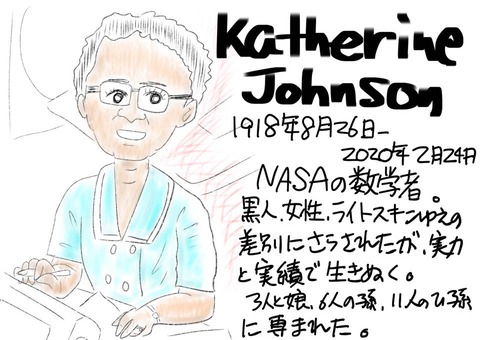 Katherine
Johnson
1918年8月26日−
2020年2月24日
NASAの数学者。
黒人、女性、ライトスキンゆえの
差別にさらされたが、実力
と実績で生きぬく。
3人と娘、6人の孫、11人のひ孫
に恵まれた。